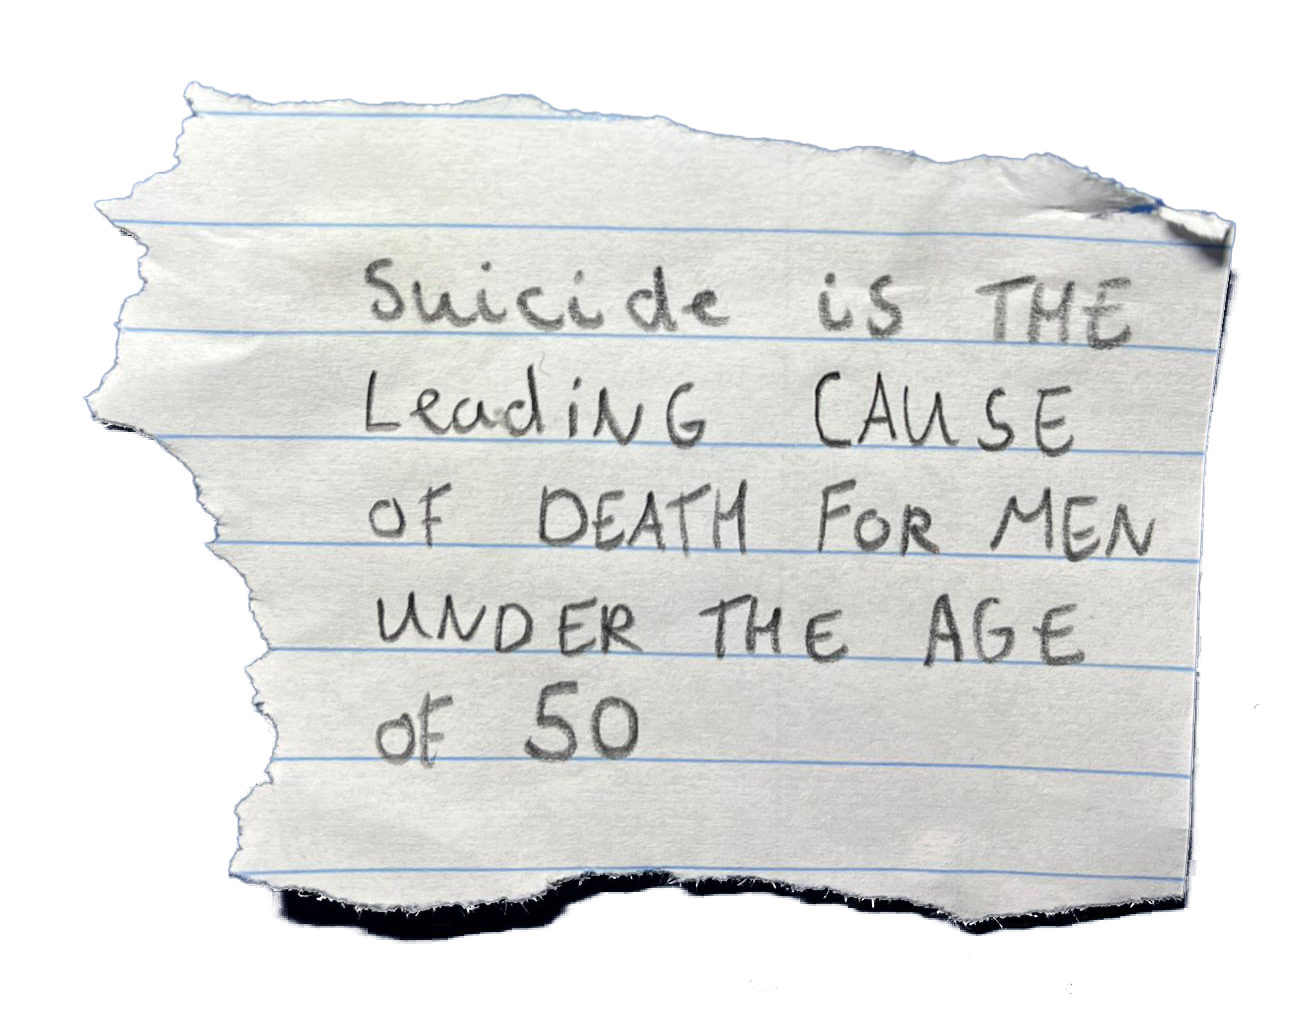 Suicide is THE
LeadiNG CAUSE
OF DEATH FOR MEN
UNDER THE AGE
OF 50